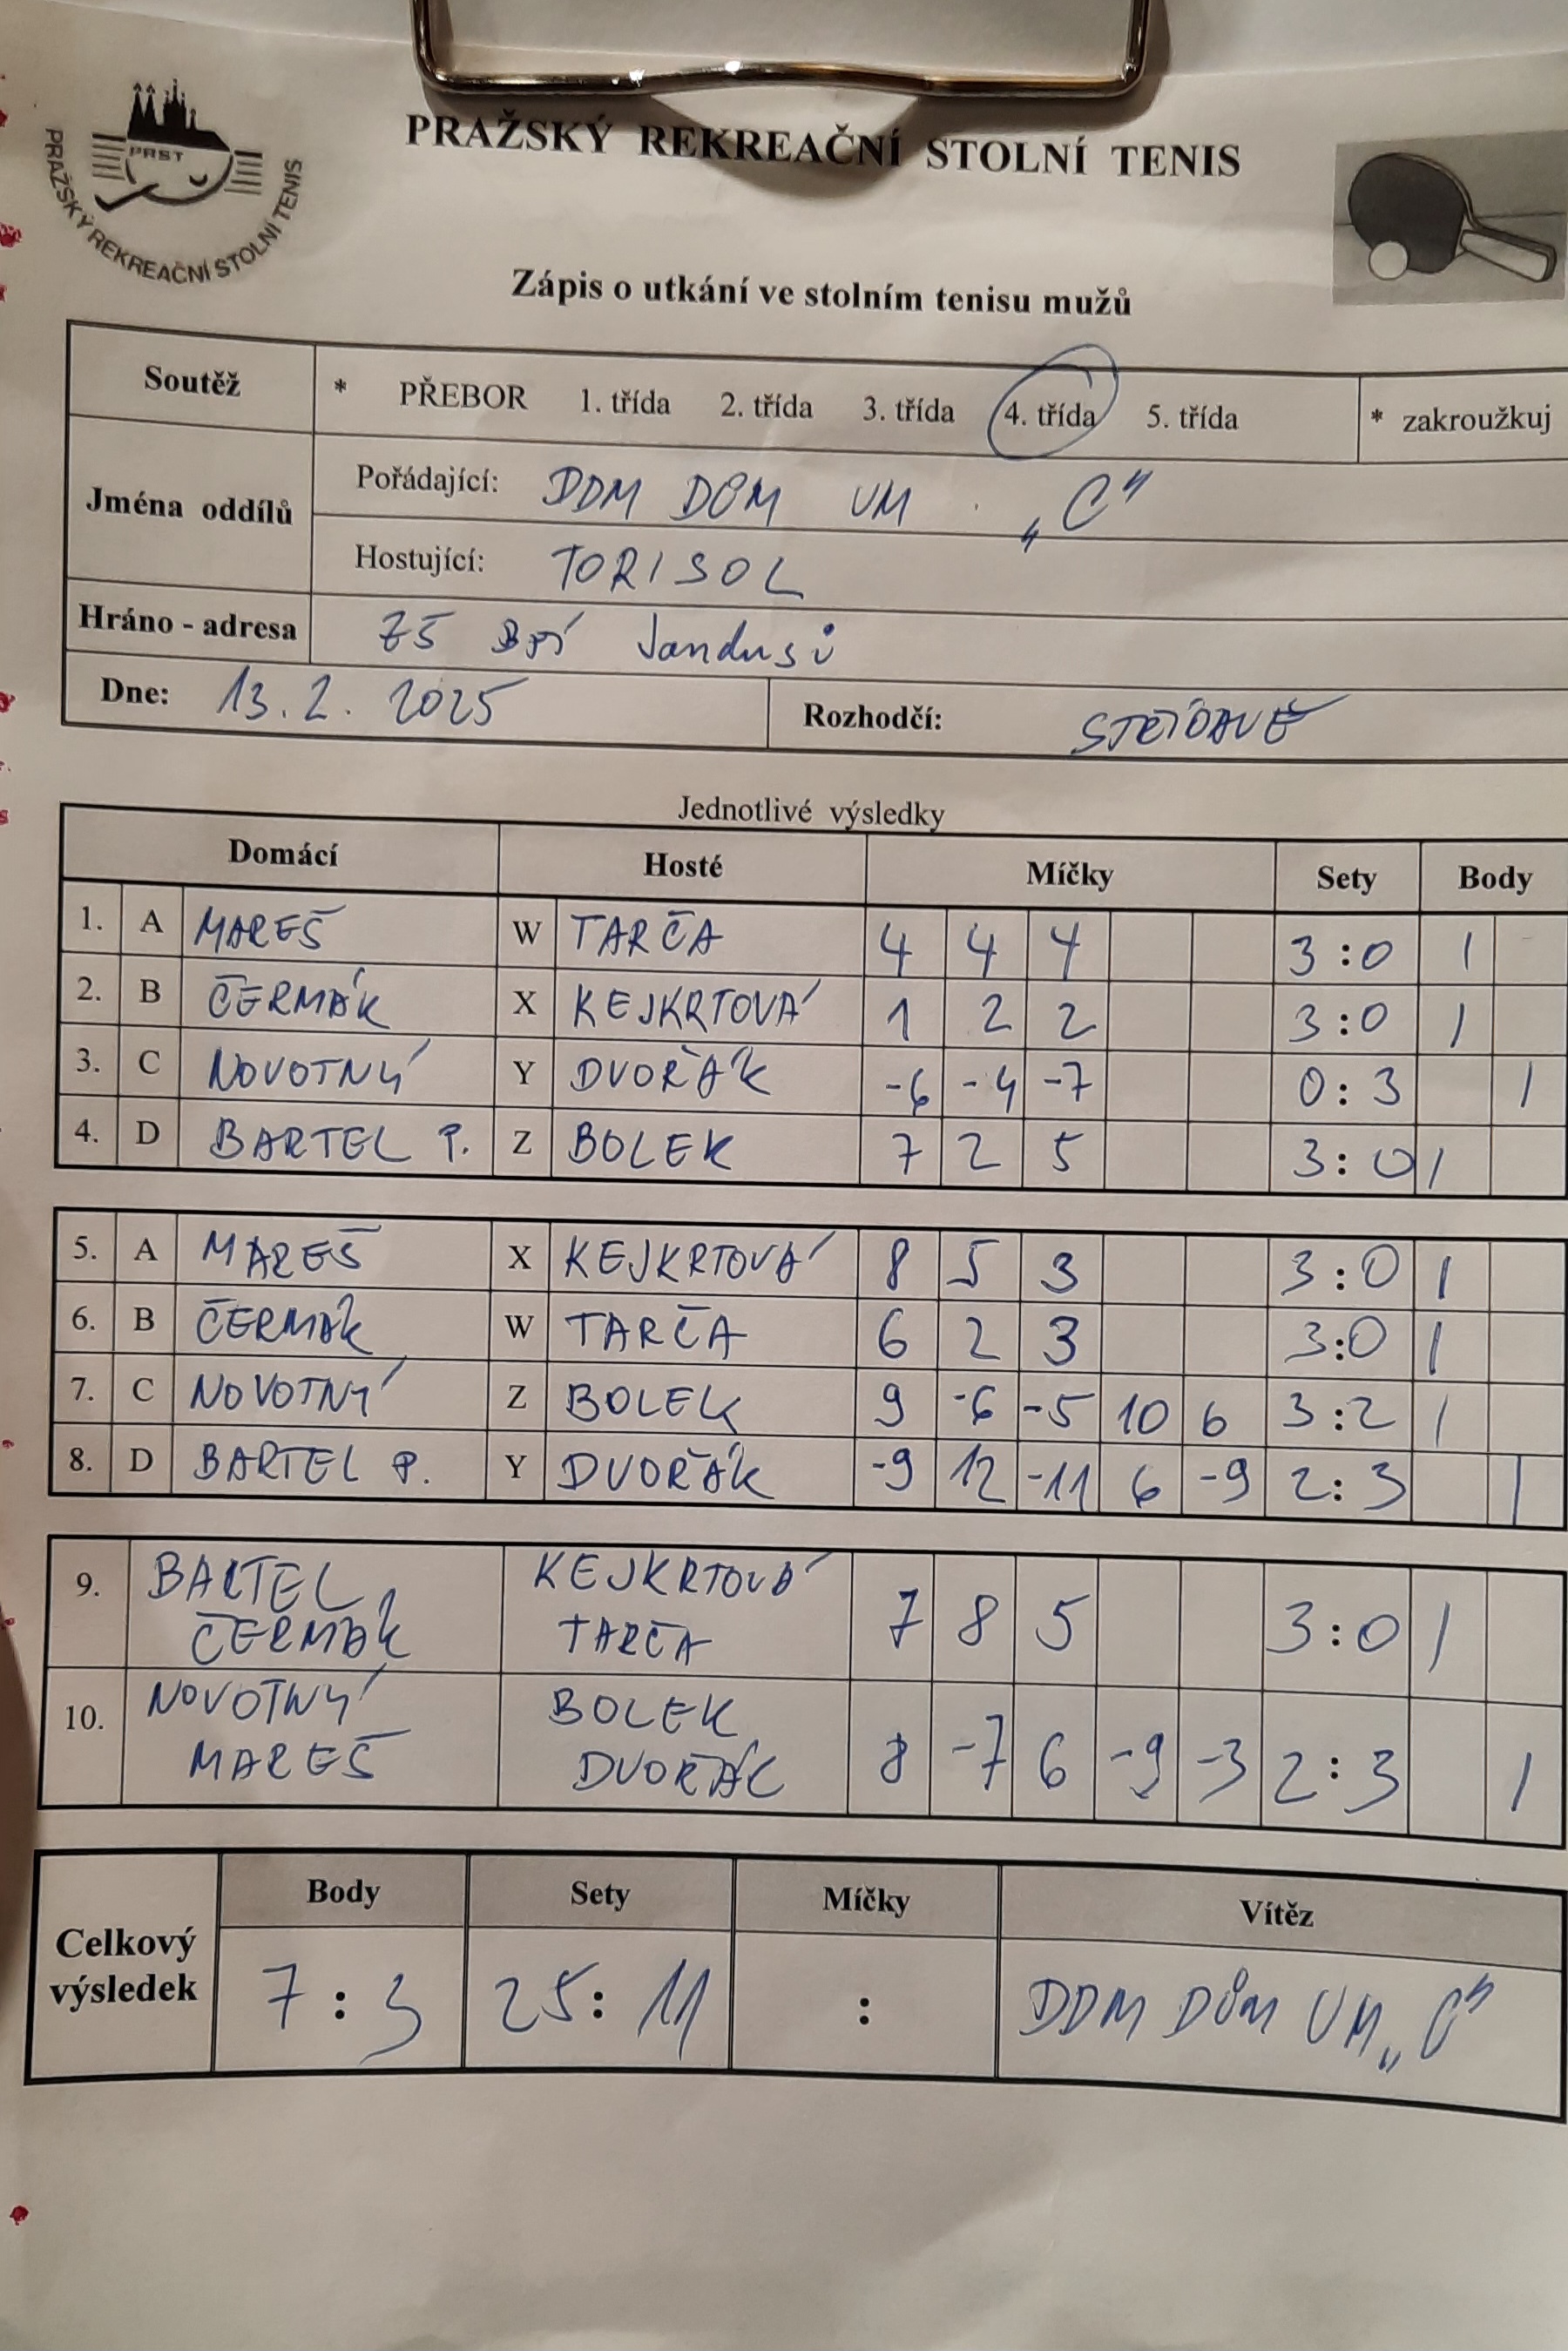 PRST
PRAŽSKÝ REKREAČNÍ STOLNÍ TENIS
PRAŽSKÝ REKREAČNÍ STOLNÍ TENIS
Zápis o utkání ve stolním tenisu mužů
Soutěž * PŘEBOR 1. třída 2. třída 3. třída 4. třída 5. třída * zakroužkuj
Jména oddílů
Pořádající: DDM DŮM UM „C"
Hostující: TORISOL
Hráno - adresa ZŠ Bří Jandusů
Dne: 13. 2. 2025 Rozhodčí: STŘÍDAVĚ
Jednotlivé výsledky
Domácí Hosté Míčky Sety Body
1. A MAREŠ W TARČA 4 4 4 3:0 1
2. B ČERMÁK X KEJKRTOVÁ 1 2 2 3:0 1
3. C NOVOTNÝ Y DVOŘÁK -6 -4 -7 0:3 1
4. D BARTEL P. Z BOLEK 7 2 5 3:0 1
5. A MAREŠ X KEJKRTOVÁ 8 5 3 3:0 1
6. B ČERMÁK W TARČA 6 2 3 3:0 1
7. C NOVOTNÝ Z BOLEK 9 -6 -5 10 6 3:2 1
8. D BARTEL P. Y DVOŘÁK -9 12 -11 6 -9 2:3 1
9. BARTEL KEJKRTOVÁ 7 8 5 3:0 1
ČERMÁK TARČA
10. NOVOTNÝ BOLEK 8 -7 6 -9 -3 2:3 1
MAREŠ DVOŘÁK
Celkový výsledek
Body Sety Míčky Vítěz
7:3 25:11 : DDM DŮM UM „C"